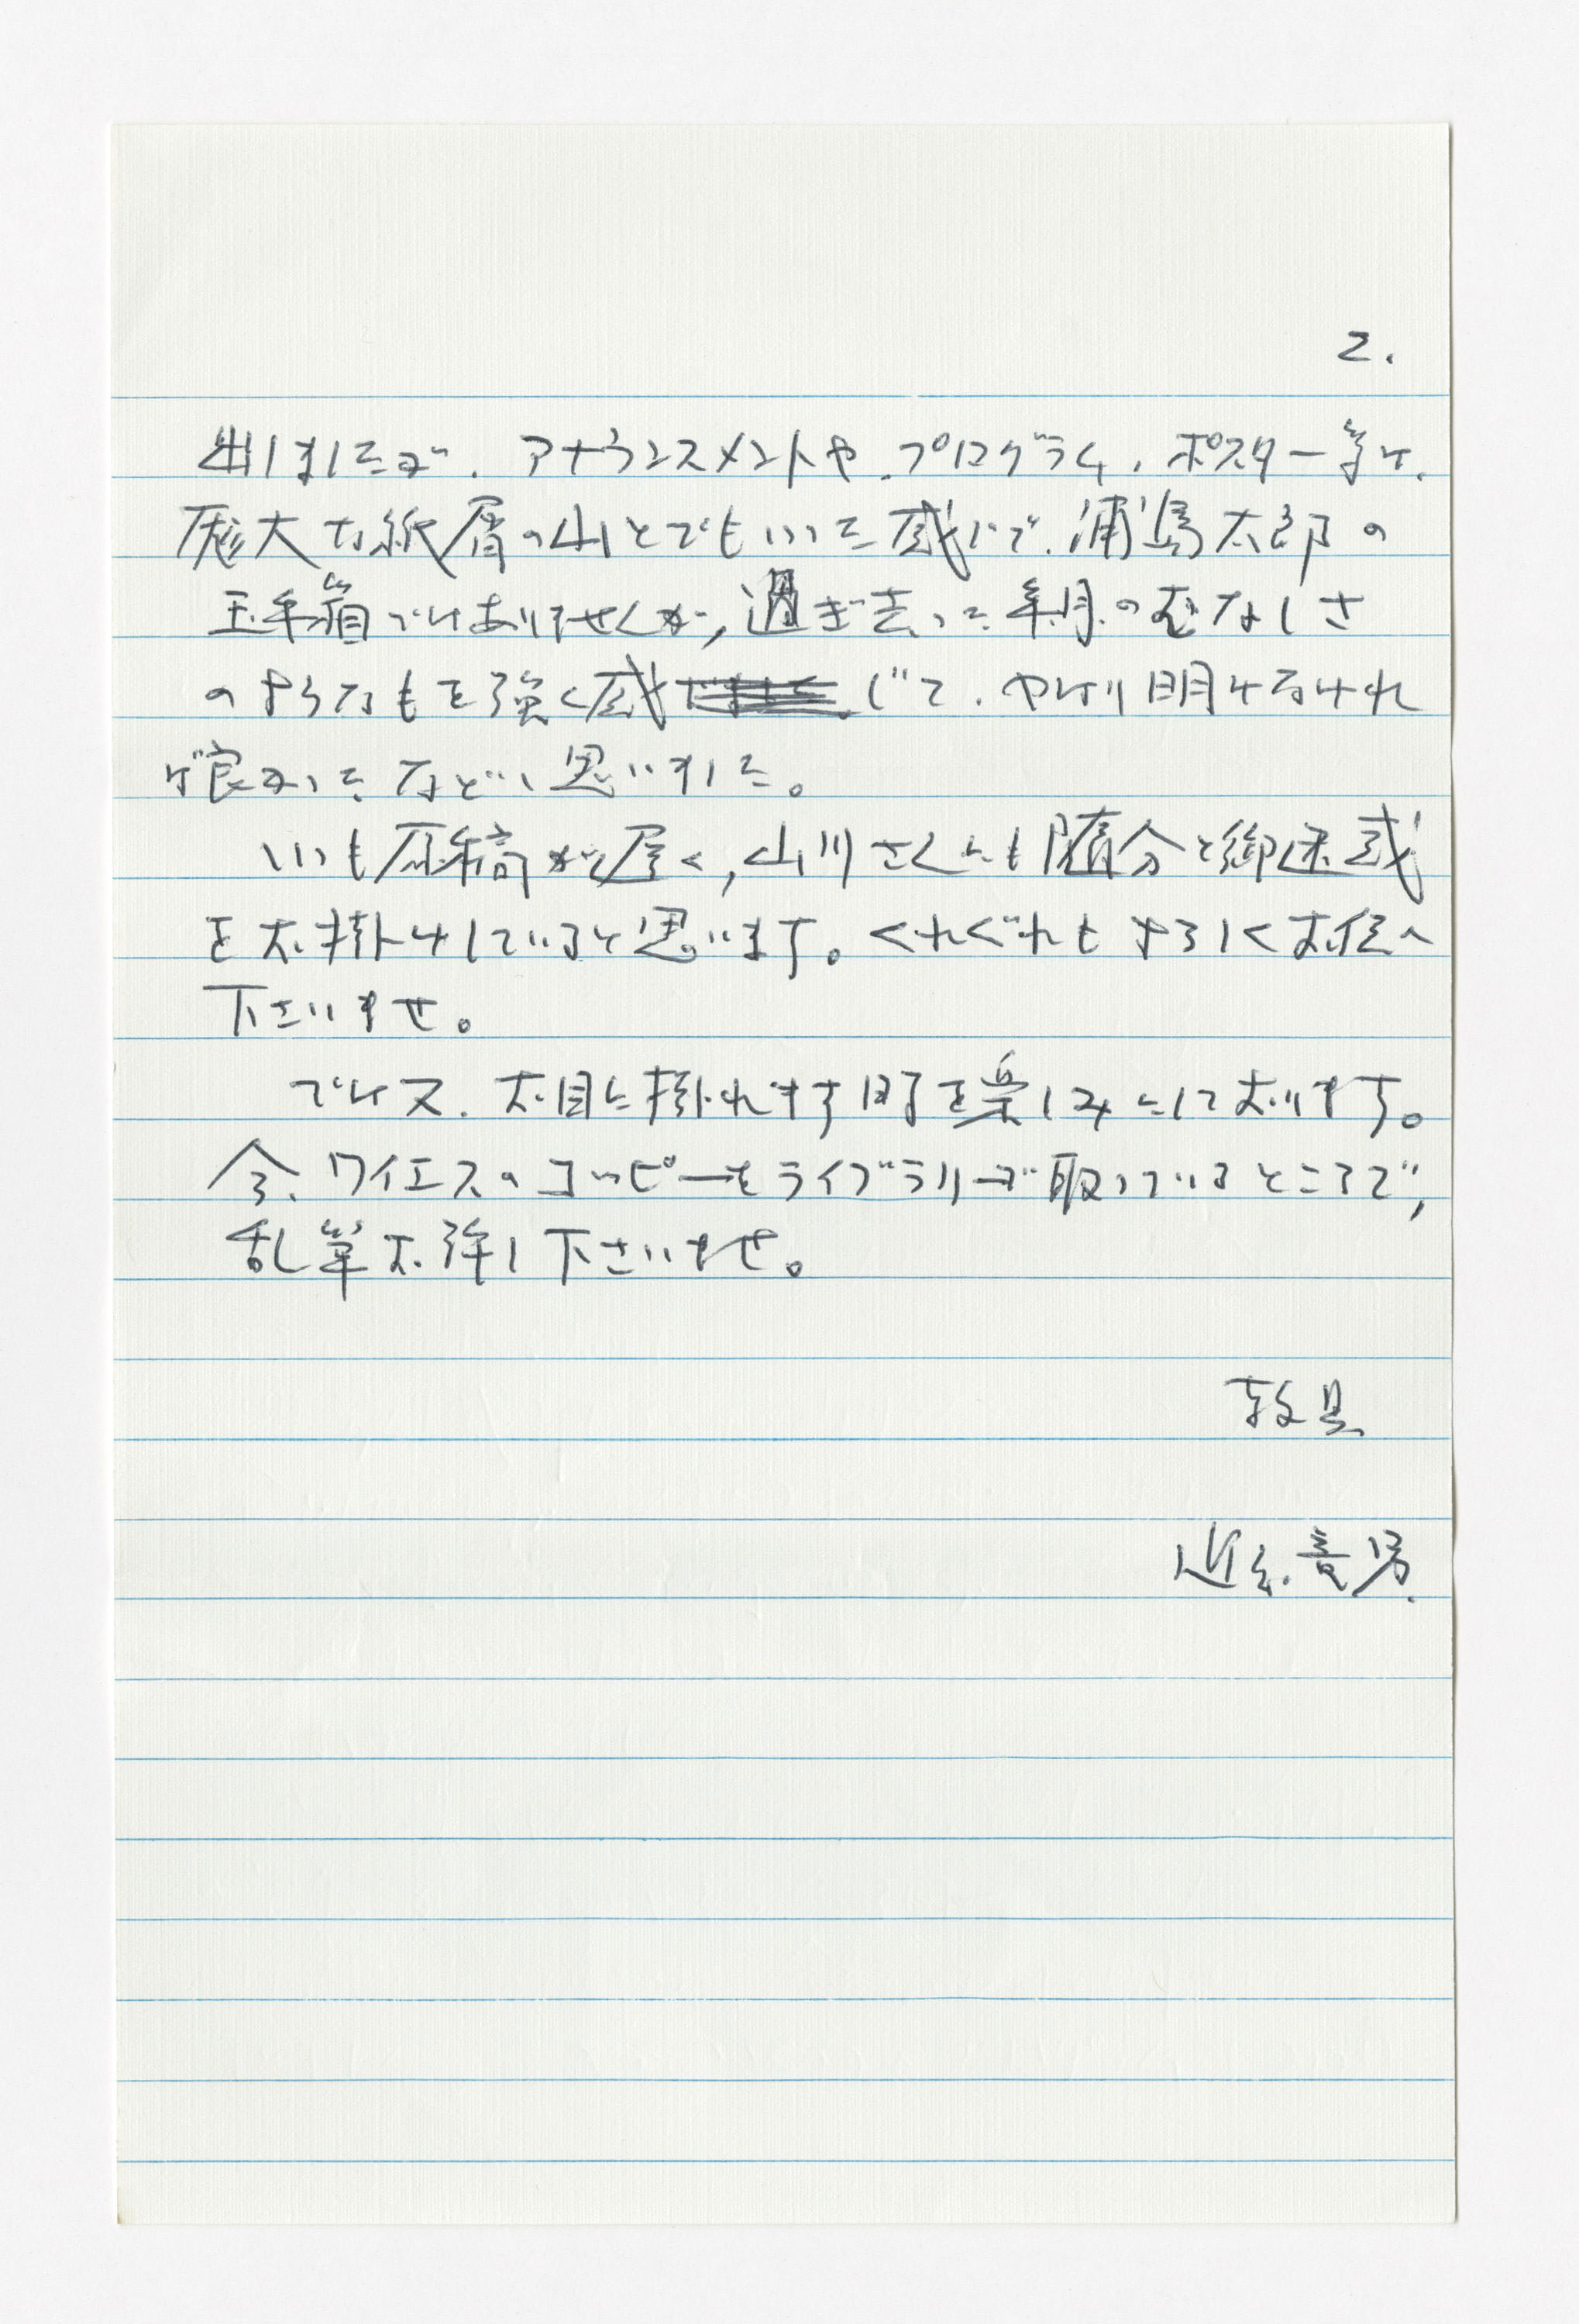 2.
出しましたが、アナウンスメントや、プログラム、ポスター等は、
厖大な紙屑の山とでもいった感じで、浦島太郎の
玉手箱ではありませんが、過ぎ去った年月のむなしさ
のようなもを強く感じて、やはり明けなけれ
ば良かったなどと思いました。
いつも原稿が遅く、山川さんにも随分と御迷惑
をお掛けしていると思います。くれぐれもよろしくお伝へ
下さいませ。
では又、お目に掛れます時を楽しみにしております。
今、ワイエスのコッピーをライブラリーで取っているところで、
乱筆お許し下さいませ。
敬具
近藤竜男